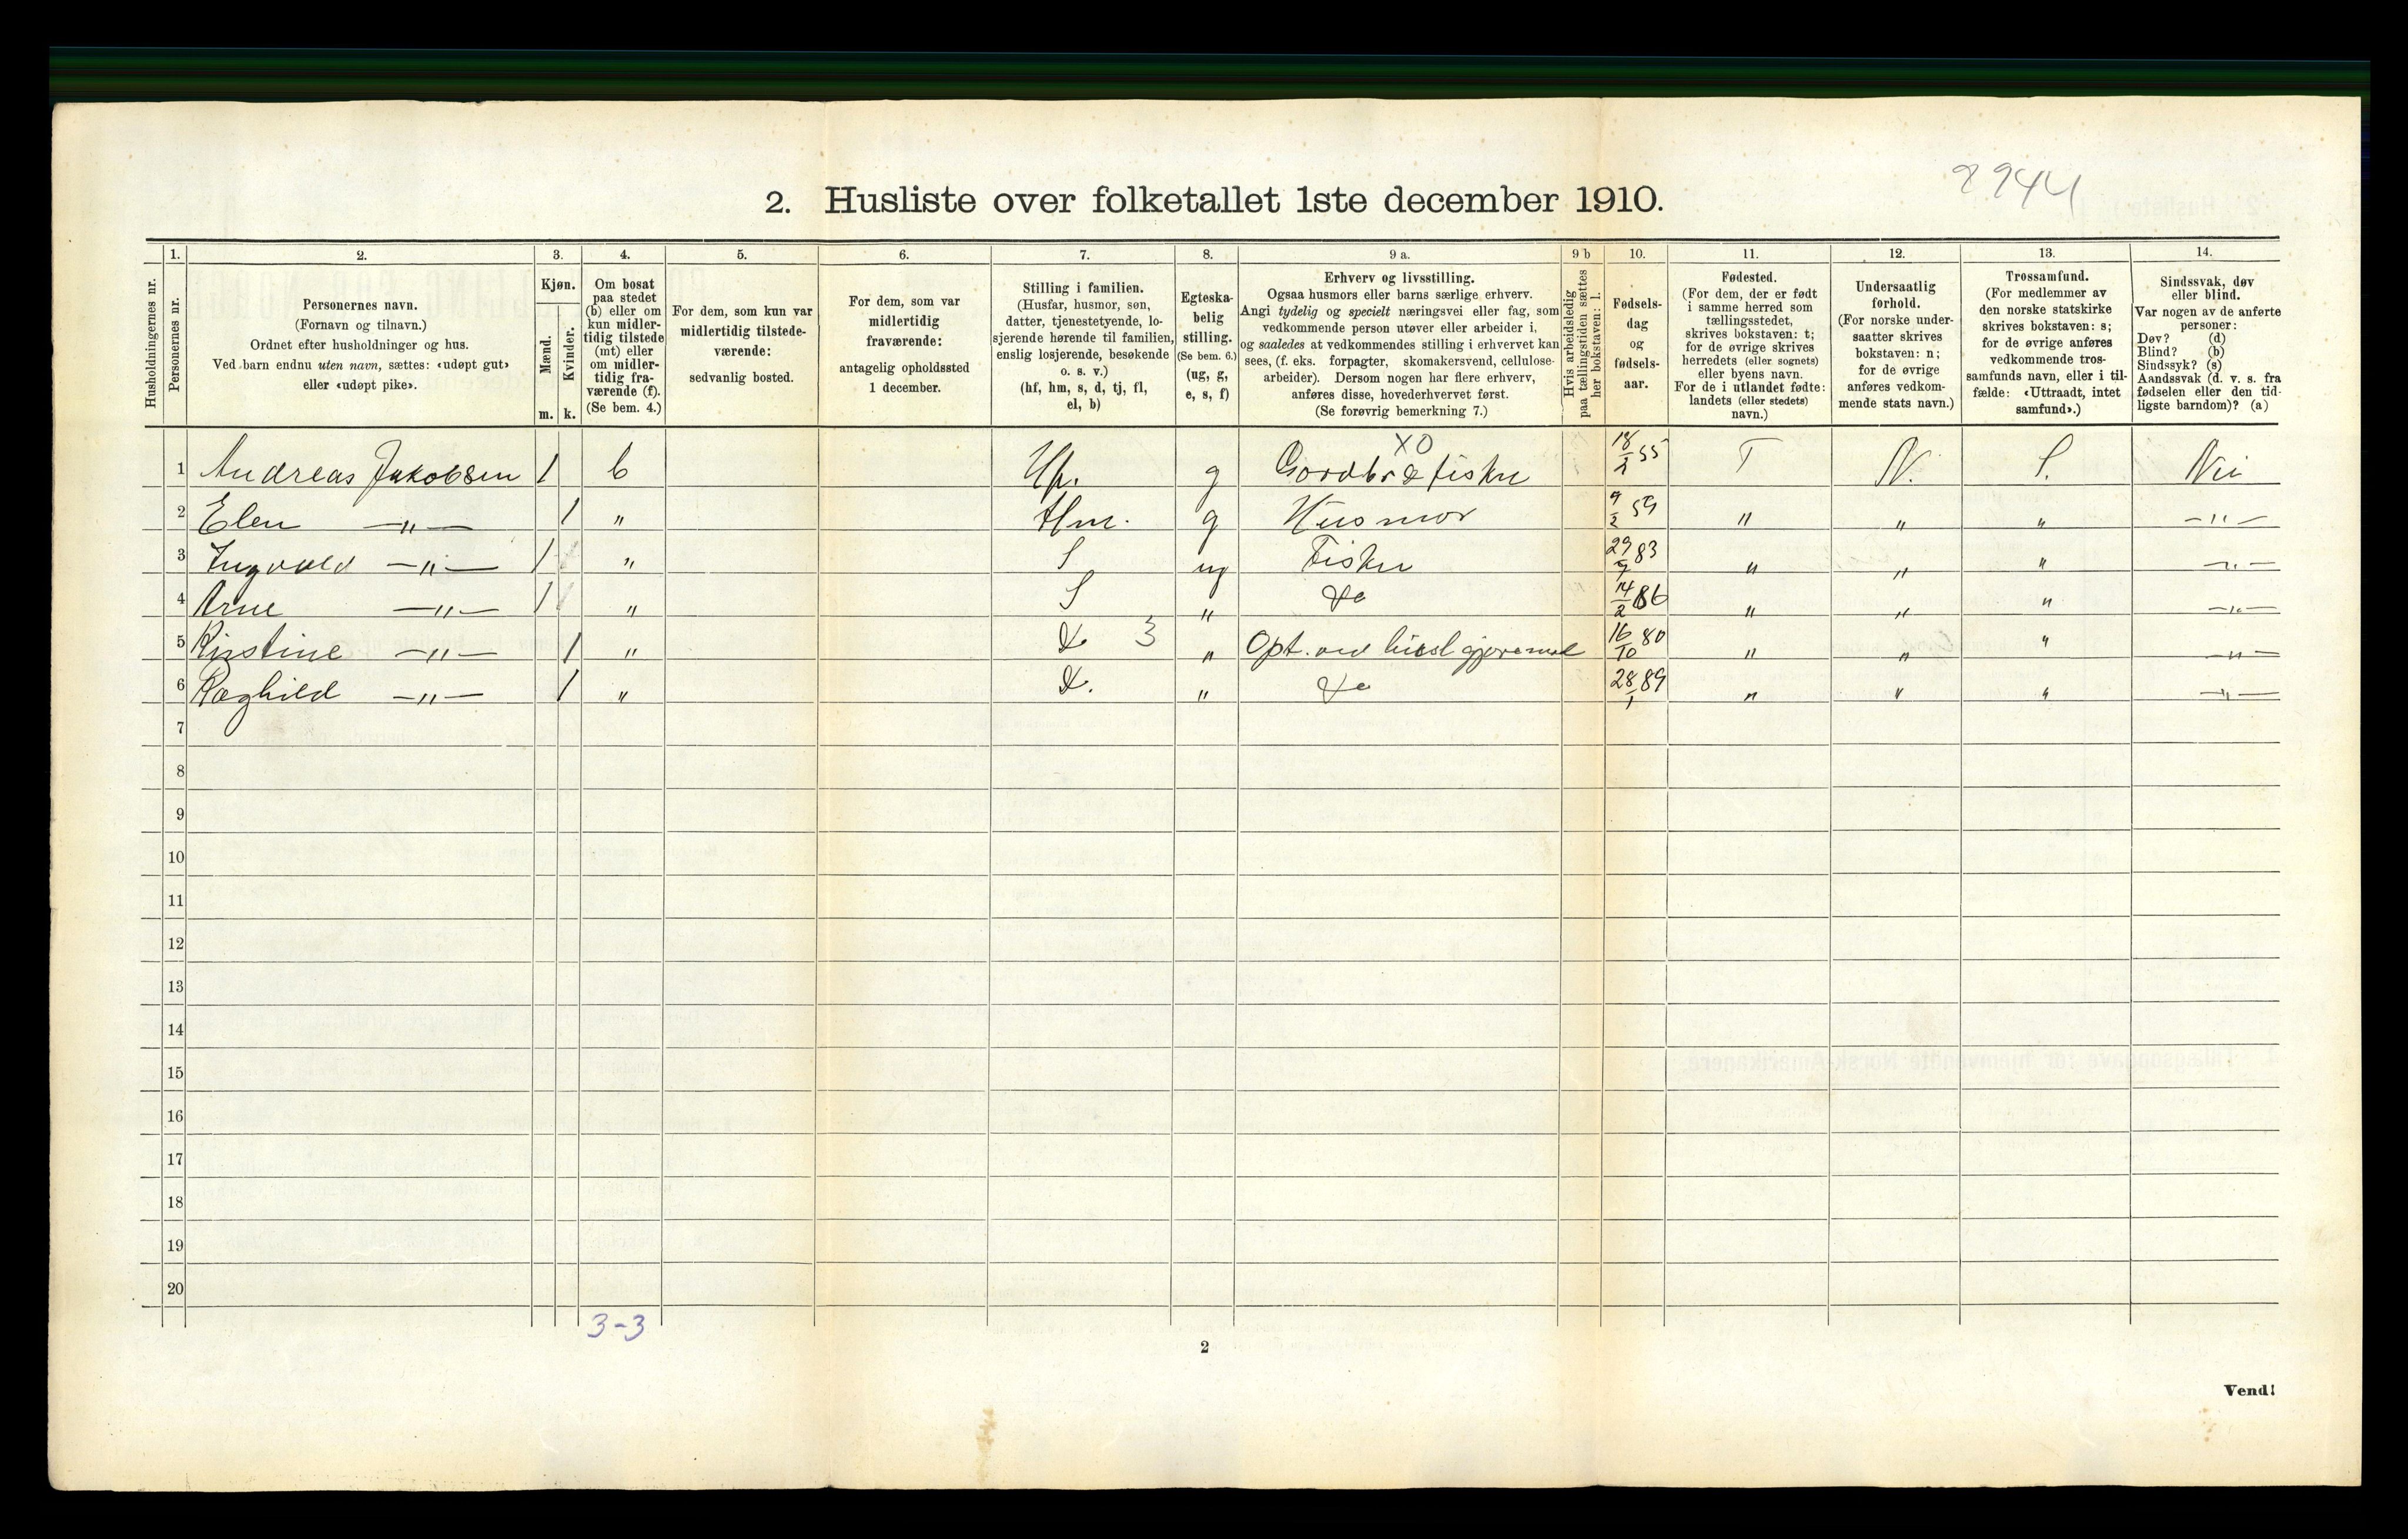 2944
2. Husliste over folketallet 1ste december 1910.
Husholdningernes nr.
1. Personernes nr.
2. Personernes navn. (Fornavn og tilnavn.) Ordnet efter husholdninger og hus. Ved barn endnu uten navn, sættes: «udøpt gut» eller «udøpt pike».
3. Kjøn. Mænd. m. Kvinder. k.
4. Om bosat paa stedet (b) eller om kun midlertidig tilstede (mt) eller om midlertidig fraværende (f). (Se bem. 4.)
5. For dem, som kun var midlertidig tilstedeværende: sedvanlig bosted.
6. For dem, som var midlertidig fraværende: antagelig opholdssted 1 december.
7. Stilling i familien. (Husfar, husmor, søn, datter, tjenestetyende, losjerende hørende til familien, enslig losjerende, besøkende o. s. v.) (hf, hm, s, d, tj, fl, el, b)
8. Egteskabelig stilling. (Se bem. 6.) (ug, g, e, s, f)
9 a. Erhverv og livsstilling. Ogsaa husmors eller barns særlige erhverv. Angi tydelig og specielt næringsvei eller fag, som vedkommende person utøver eller arbeider i, og saaledes at vedkommendes stilling i erhvervet kan sees, (f. eks. forpagter, skomakersvend, cellulosearbeider). Dersom nogen har flere erhverv, anføres disse, hovederhvervet først. (Se forøvrig bemerkning 7.)
9 b Hvis arbeidsledig paa tællingstiden sættes her bokstaven: l.
10. Fødselsdag og fødselsaar.
11. Fødested. (For dem, der er født i samme herred som tællingsstedet, skrives bokstaven: t; for de øvrige skrives herredets (eller sognets) eller byens navn. For de i utlandet fødte: landets (eller stedets) navn.)
12. Undersaatlig forhold. (For norske undersaatter skrives bokstaven: n; for de øvrige anføres vedkommende stats navn.)
13. Trossamfund. (For medlemmer av den norske statskirke skrives bokstaven: s; for de øvrige anføres vedkommende trossamfunds navn, eller i tilfælde: «Uttraadt, intet samfund».)
14. Sindssvak, døv eller blind. Var nogen av de anførte personer: Døv? (d) Blind? (b) Sindssyk? (s) Aandssvak (d. v. s. fra fødselen eller den tidligste barndom)? (a)
XO
1 Andreas Jakobsen 1 b Hf. g Gordbr & fisker 18/2 55 T N. S. Nei
2 Elen —"— 1 " Hm. g Husmor 9/2 59 " " " —"—
3 Ingvald —"— 1 " S ug Fisker 29/7 83 " " " —"—
4 Arne —"— 1 " S " Do 14/2 86 " " " —"—
5 Kirstine —"— 1 " D 3 " Opt. ved husl gjøremal 16/10 80 " " " —"—
6 Raghild —"— 1 " D. " Do 28/1 89 " " " —"—
7
8
9
10
11
12
13
14
15
16
17
18
19
20
3-3
2
Vend!